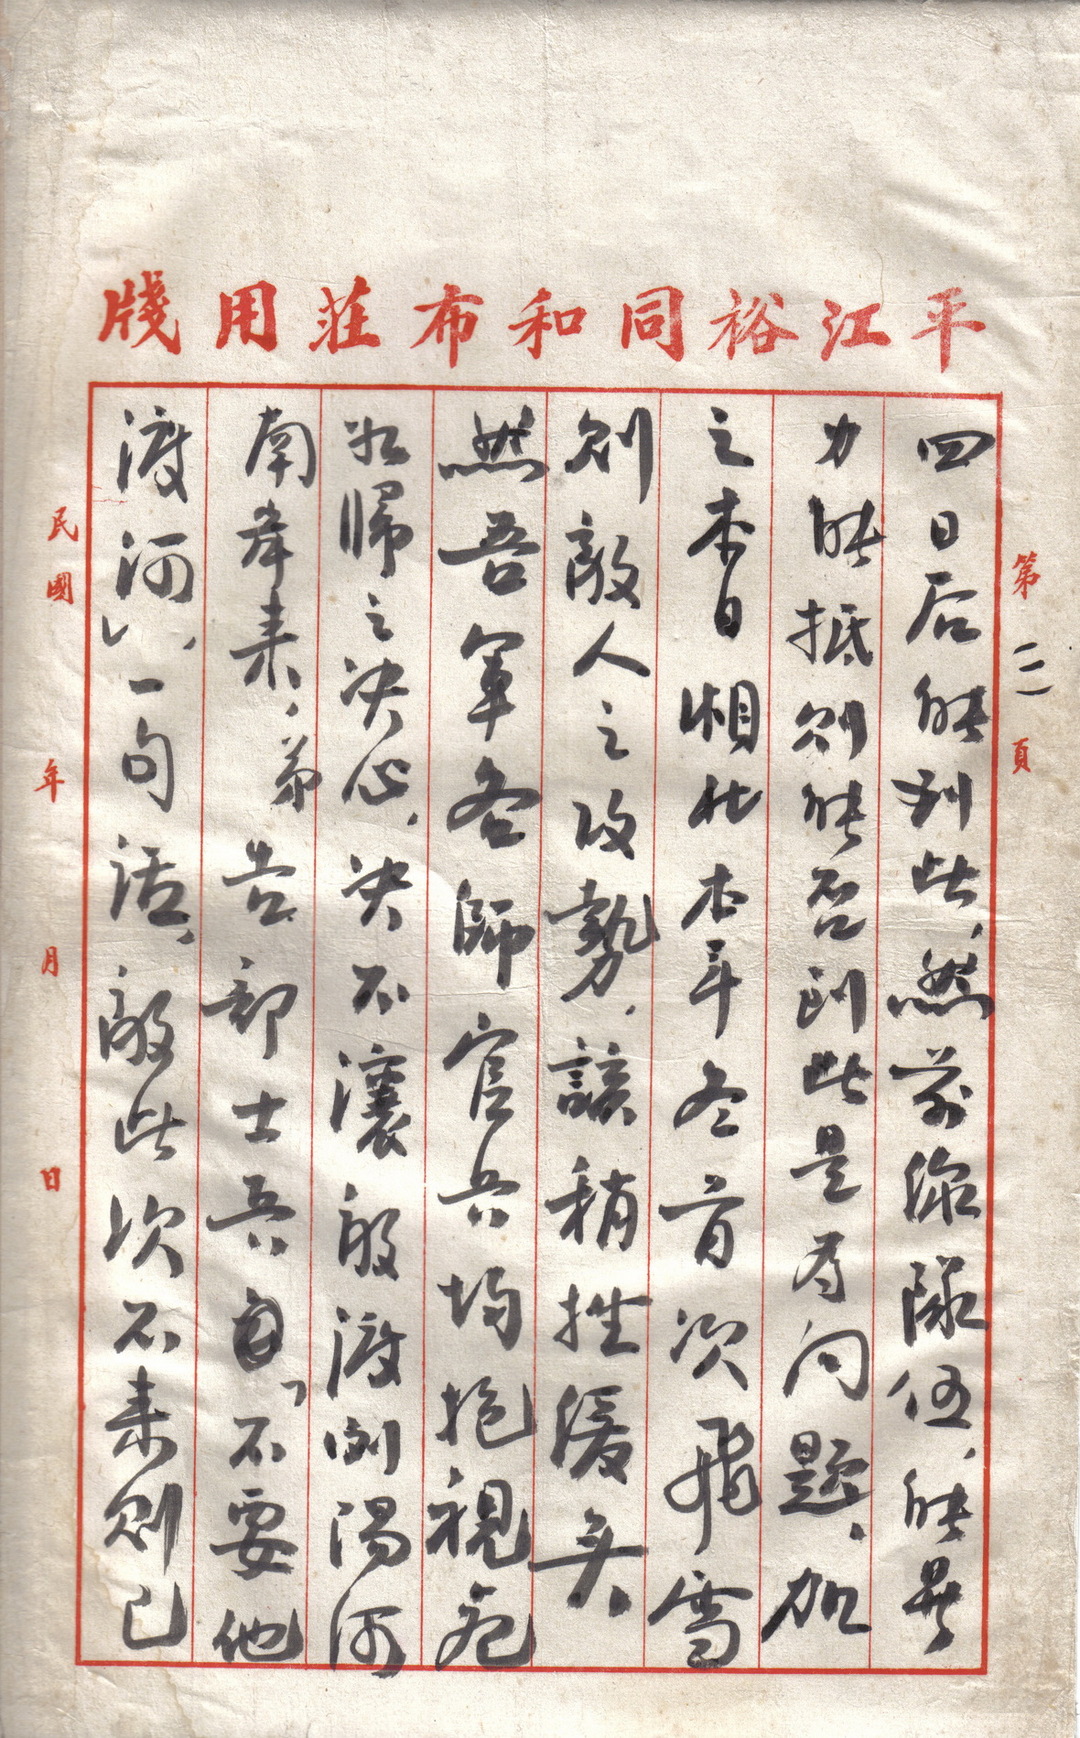 平江裕同和布莊用牋
第二頁
四日后能到此、然前線隊伍、能畢
力能抵則能否到此是为问题、加
之本日湘北本年冬首次飛雪
則敵人之攻勢、諒稍挫緩矣
然吾軍各師官兵均抱視死
如歸之决心、决不讓敵渡汨羅河
南岸来、弟告部士兵曰、「不要他
渡河」、一句话、敵此次不来則已
民國 年 月 日